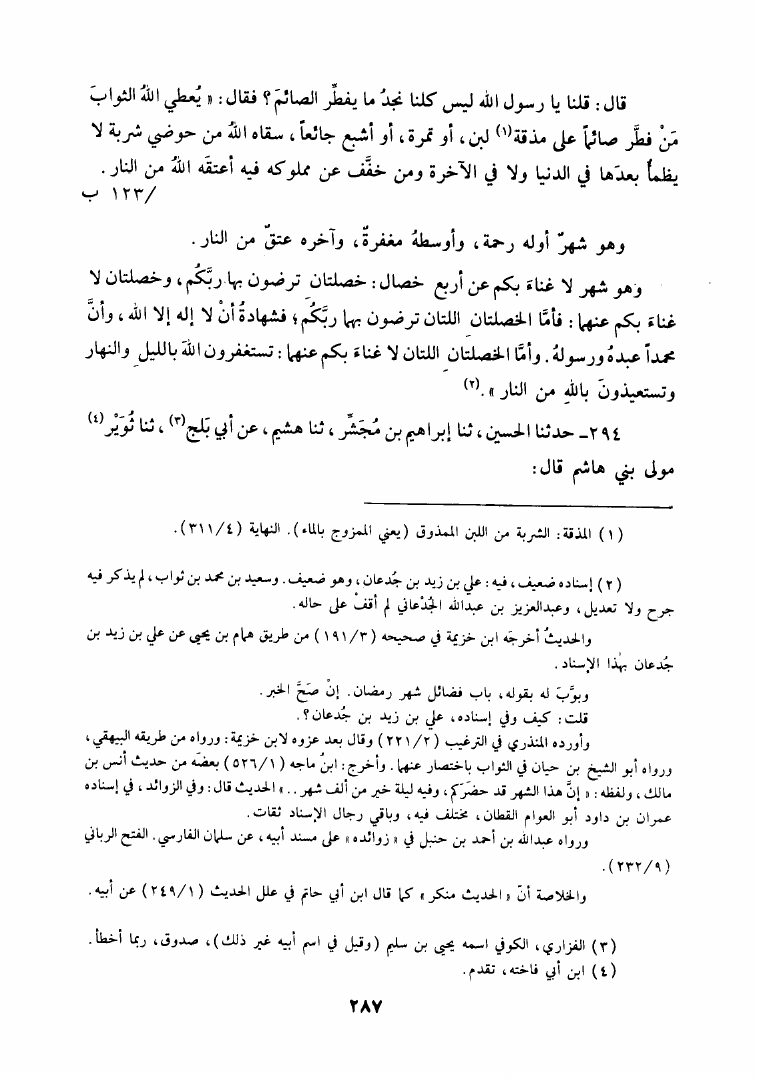 قال: قلنا يا رسول الله ليس كلنا نجدُ ما يفطِّر الصائمَ؟ فقال: « يُعطي اللهُ الثوابَ
مَنْ فطَّر صائماً على مذقة(١) لبن، أو تمرة، أو أشبع جائعاً، سقاه اللهُ من حوضي شربة لا
يظمأُ بعدَها في الدنيا ولا في الآخرة ومن خفَّف عن مملوكه فيه أعتقَه اللهُ من النار .
/١٢٣ ب
وهو شهرٌ أوله رحمة، وأوسطهُ مغفرةٌ، وآخره عتقٌ من النار .
وهو شهر لا غناءَ بكم عن أربع خصال: خصلتان ترضون بها ربَّكُم، وخصلتان لا
غناءَ بكم عنهما: فأمَّا الخصلتان اللتان ترضون بهما ربَّكُم؛ فشهادةُ أنْ لا إله إلا الله، وأنَّ
محمداً عبدهُ ورسولهُ. وأمَّا الخصلتان اللتان لا غناءَ بكم عنهما: تستغفرون اللهَ بالليلِ والنهار
وتستعيذونَ باللهِ من النار ».(٢)
٢٩٤- حدثنا الحسين، ثنا إبراهيم بن مُجَشِّر، ثنا هشيم، عن أبي بَلج(٣)، ثنا ثُوَيْر(٤)
مولى بني هاشم قال:
(١) المذقة: الشربة من اللبن الممذوق (يعني الممزوج بالماء). النهاية (٣١١/٤).
(٢) إسناده ضعيف، فيه: علي بن زيد بن جُدعان، وهو ضعيف. وسعيد بن محمد بن ثواب، لم يذكر فيه
جرح ولا تعديل، وعبدالعزيز بن عبدالله الجُدْعاني لم أقفْ على حاله.
والحديثُ أخرجَه ابن خزيمة في صحيحه (١٩١/٣) من طريق همام بن يحيى عن علي بن زيد بن
جُدعان بهذا الإسناد.
وبوَّبَ له بقوله، باب فضائل شهر رمضان. إنْ صَحَّ الخبر.
قلت: كيف وفي إسناده، علي بن زيد بن جُدعان؟.
وأورده المنذري في الترغيب (٢٢١/٢) وقال بعد عزوه لابن خزيمة: ورواه من طريقه البيهقي،
ورواه أبو الشيخ بن حيان في الثواب باختصار عنهما. وأخرج: ابنُ ماجه (٥٢٦/١) بعضَه من حديث أنس بن
مالك، ولفظه: « إنَّ هذا الشهر قد حضَركم، وفيه ليلة خير من ألف شهر .. » الحديث قال: وفي الزوائد، في إسناده
عمران بن داود أبو العوام القطان، مختلف فيه، وباقي رجال الإسناد ثقات.
ورواه عبدالله بن أحمد بن حنبل في « زوائده » على مسند أبيه، عن سلمان الفارسي. الفتح الرباني
(٢٣٢/٩).
والخلاصة أنّ « الحديث منكر » كما قال ابن أبي حاتم في علل الحديث (٢٤٩/١) عن أبيه.
(٣) الفزاري، الكوفي اسمه يحيى بن سليم (وقيل في اسم أبيه غير ذلك)، صدوق، ربما أخطأ.
(٤) ابن أبي فاخته، تقدم.
٢٨٧